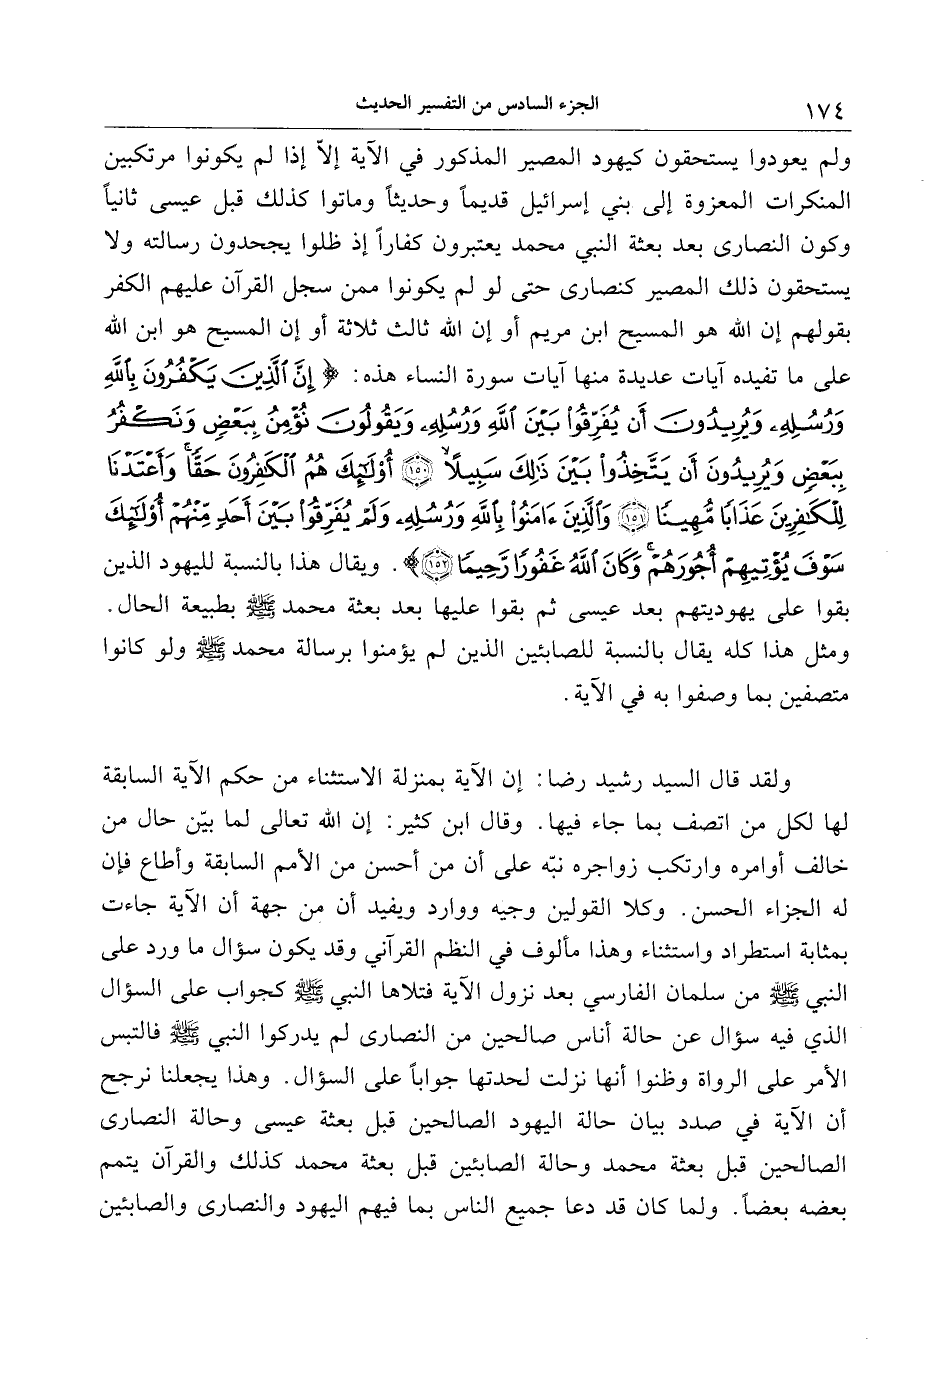 ١٧٤
الجزء السادس من التفسير الحديث
ولم يعودوا يستحقون كيهود المصير المذكور في الآية إلاّ إذا لم يكونوا مرتكبين
المنكرات المعزوة إلى بني إسرائيل قديماً وحديثاً وماتوا كذلك قبل عيسى ثانياً
وكون النصارى بعد بعثة النبي محمد يعتبرون كفاراً إذ ظلوا يجحدون رسالته ولا
يستحقون ذلك المصير كنصارى حتى لو لم يكونوا ممن سجل القرآن عليهم الكفر
بقولهم إن الله هو المسيح ابن مريم أو إن الله ثالث ثلاثة أو إن المسيح هو ابن الله
على ما تفيده آيات عديدة منها آيات سورة النساء هذه: ﴿ إِنَّ ٱلَّذِينَ يَكْفُرُونَ بِٱللَّهِ
وَرُسُلِهِۦ وَيُرِيدُونَ أَن يُفَرِّقُوا۟ بَيْنَ ٱللَّهِ وَرُسُلِهِۦ وَيَقُولُونَ نُؤْمِنُ بِبَعْضٍ وَنَكْفُرُ
بِبَعْضٍ وَيُرِيدُونَ أَن يَتَّخِذُوا۟ بَيْنَ ذَٰلِكَ سَبِيلًا ﴿١٥٠﴾ أُو۟لَٰٓئِكَ هُمُ ٱلْكَٰفِرُونَ حَقًّا ۚ وَأَعْتَدْنَا
لِلْكَٰفِرِينَ عَذَابًا مُّهِينًا ﴿١٥١﴾ وَٱلَّذِينَ ءَامَنُوا۟ بِٱللَّهِ وَرُسُلِهِۦ وَلَمْ يُفَرِّقُوا۟ بَيْنَ أَحَدٍ مِّنْهُمْ أُو۟لَٰٓئِكَ
سَوْفَ يُؤْتِيهِمْ أُجُورَهُمْ ۚ وَكَانَ ٱللَّهُ غَفُورًا رَّحِيمًا ﴿١٥٢﴾ ﴾. ويقال هذا بالنسبة لليهود الذين
بقوا على يهوديتهم بعد عيسى ثم بقوا عليها بعد بعثة محمد ﷺ بطبيعة الحال.
ومثل هذا كله يقال بالنسبة للصابئين الذين لم يؤمنوا برسالة محمد ﷺ ولو كانوا
متصفين بما وصفوا به في الآية.
ولقد قال السيد رشيد رضا: إن الآية بمنزلة الاستثناء من حكم الآية السابقة
لها لكل من اتصف بما جاء فيها. وقال ابن كثير: إن الله تعالى لما بيّن حال من
خالف أوامره وارتكب زواجره نبّه على أن من أحسن من الأمم السابقة وأطاع فإن
له الجزاء الحسن. وكلا القولين وجيه ووارد ويفيد أن من جهة أن الآية جاءت
بمثابة استطراد واستثناء وهذا مألوف في النظم القرآني وقد يكون سؤال ما ورد على
النبي ﷺ من سلمان الفارسي بعد نزول الآية فتلاها النبي ﷺ كجواب على السؤال
الذي فيه سؤال عن حالة أناس صالحين من النصارى لم يدركوا النبي ﷺ فالتبس
الأمر على الرواة وظنوا أنها نزلت لحدتها جواباً على السؤال. وهذا يجعلنا نرجح
أن الآية في صدد بيان حالة اليهود الصالحين قبل بعثة عيسى وحالة النصارى
الصالحين قبل بعثة محمد وحالة الصابئين قبل بعثة محمد كذلك والقرآن يتمم
بعضه بعضاً. ولما كان قد دعا جميع الناس بما فيهم اليهود والنصارى والصابئين